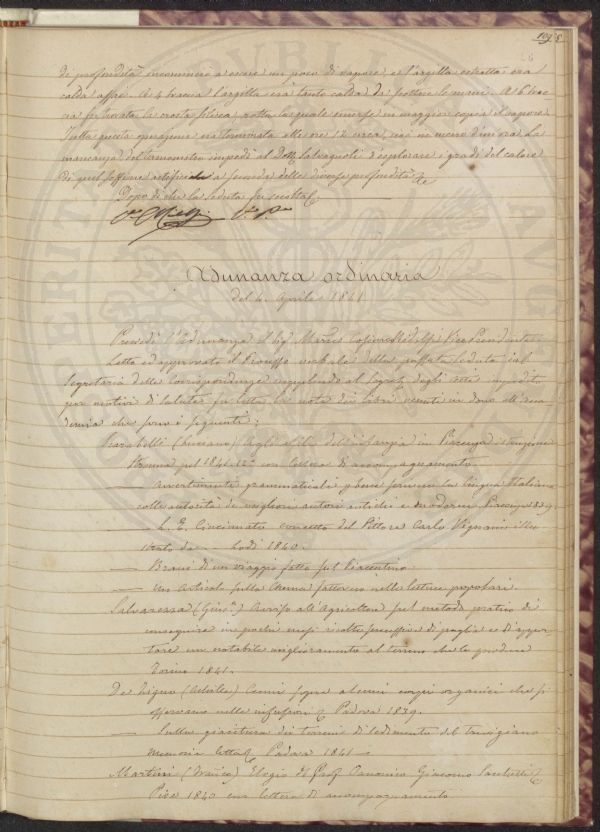 di profondità incominciò a escire un poco di vapore, e l'argilla estratta era
calda affai. A 4 braccia l'argilla era tanto calda da scottare le mani. A 6 brac
cia fu trovata la crosta silicea, rotta la quale emerse in maggior copia il vapore.
Tutta questa operazione era terminata alle ore 12 circa, cioè in meno d'un ora. La
mancanza del termometro impedì al Dott. Salvagnoli d'esplorare i gradi del calore
di quel soffione artificiale a seconda delle diverse profondità &c
Dopo di che la seduta fu sciolta.
V. P.
Adunanza ordinaria
del 4. Aprile 1841
Presiede l'Adunanza il Sig. Marco Cosimo Ridolfi Vice Presidente.
Letto ed approvato il Processo verbale della passata seduta dal
Segretario delle Corrispondenze supplendo al Segret. degli atti impedito
per motivi di salute fu letta la nota dei libri venuti in dono all'Acca
demia che sono i seguenti:
Scarabelli (Luciano) Agli asili dell'infanzia in Piacenza
Strenna pel 1841 con lettera di accompagnamento.
— Avvertimenti grammaticali per la lingua Italiana
colle autorità de' migliori autori antichi e moderni Piacenza 1839.
— L. Q. Cincinnato concetto del Pittore Carlo illu
strato da — Lodi 1840.
— Brani di un viaggio fatto pel Piacentino
— un Articolo sulla nelle letture popolari.
Salvarezza (Gius.e) Avviso all'Agricoltore sul metodo pratico di
conseguire in pochi mesi di paglia e d'appor
tare un notabile miglioramento al terreno che lo produce
Torino 1841.
De Zigno (Achille) Cenni sopra alcuni corpi organici che si
osservano nelle infusioni Padova 1839.
— Sulla giacitura dei terreni di sedimento del Trivigiano
memoria letta Padova 1841
Martini (Franco) Elogio del Prof. Canonico Giacomo Sacchetti
Pisa 1840 con lettera di accompagnamento